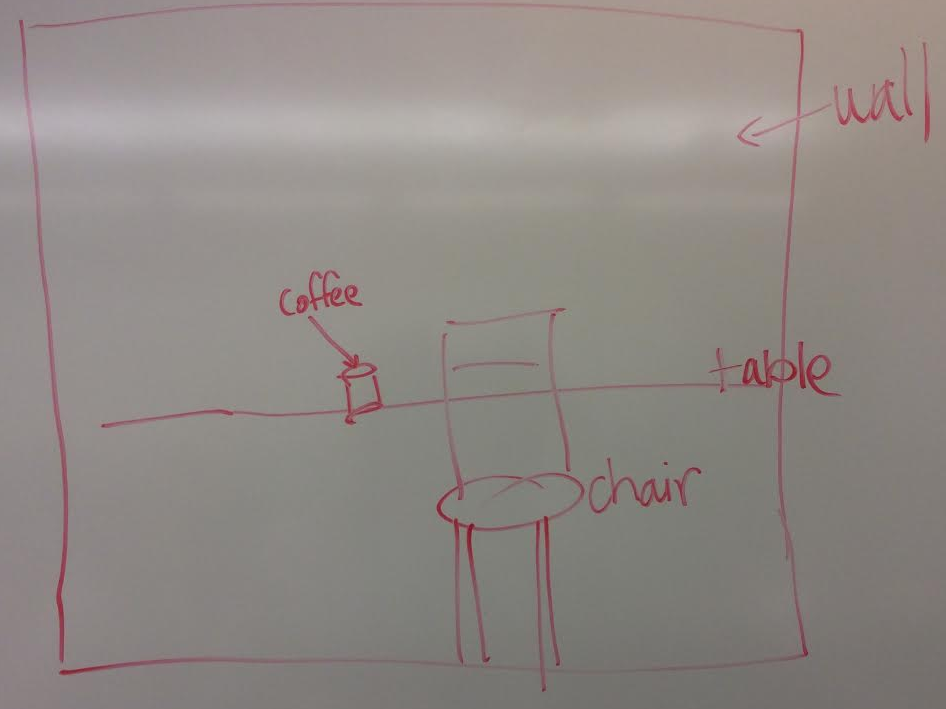 wall
coffee
table
chair